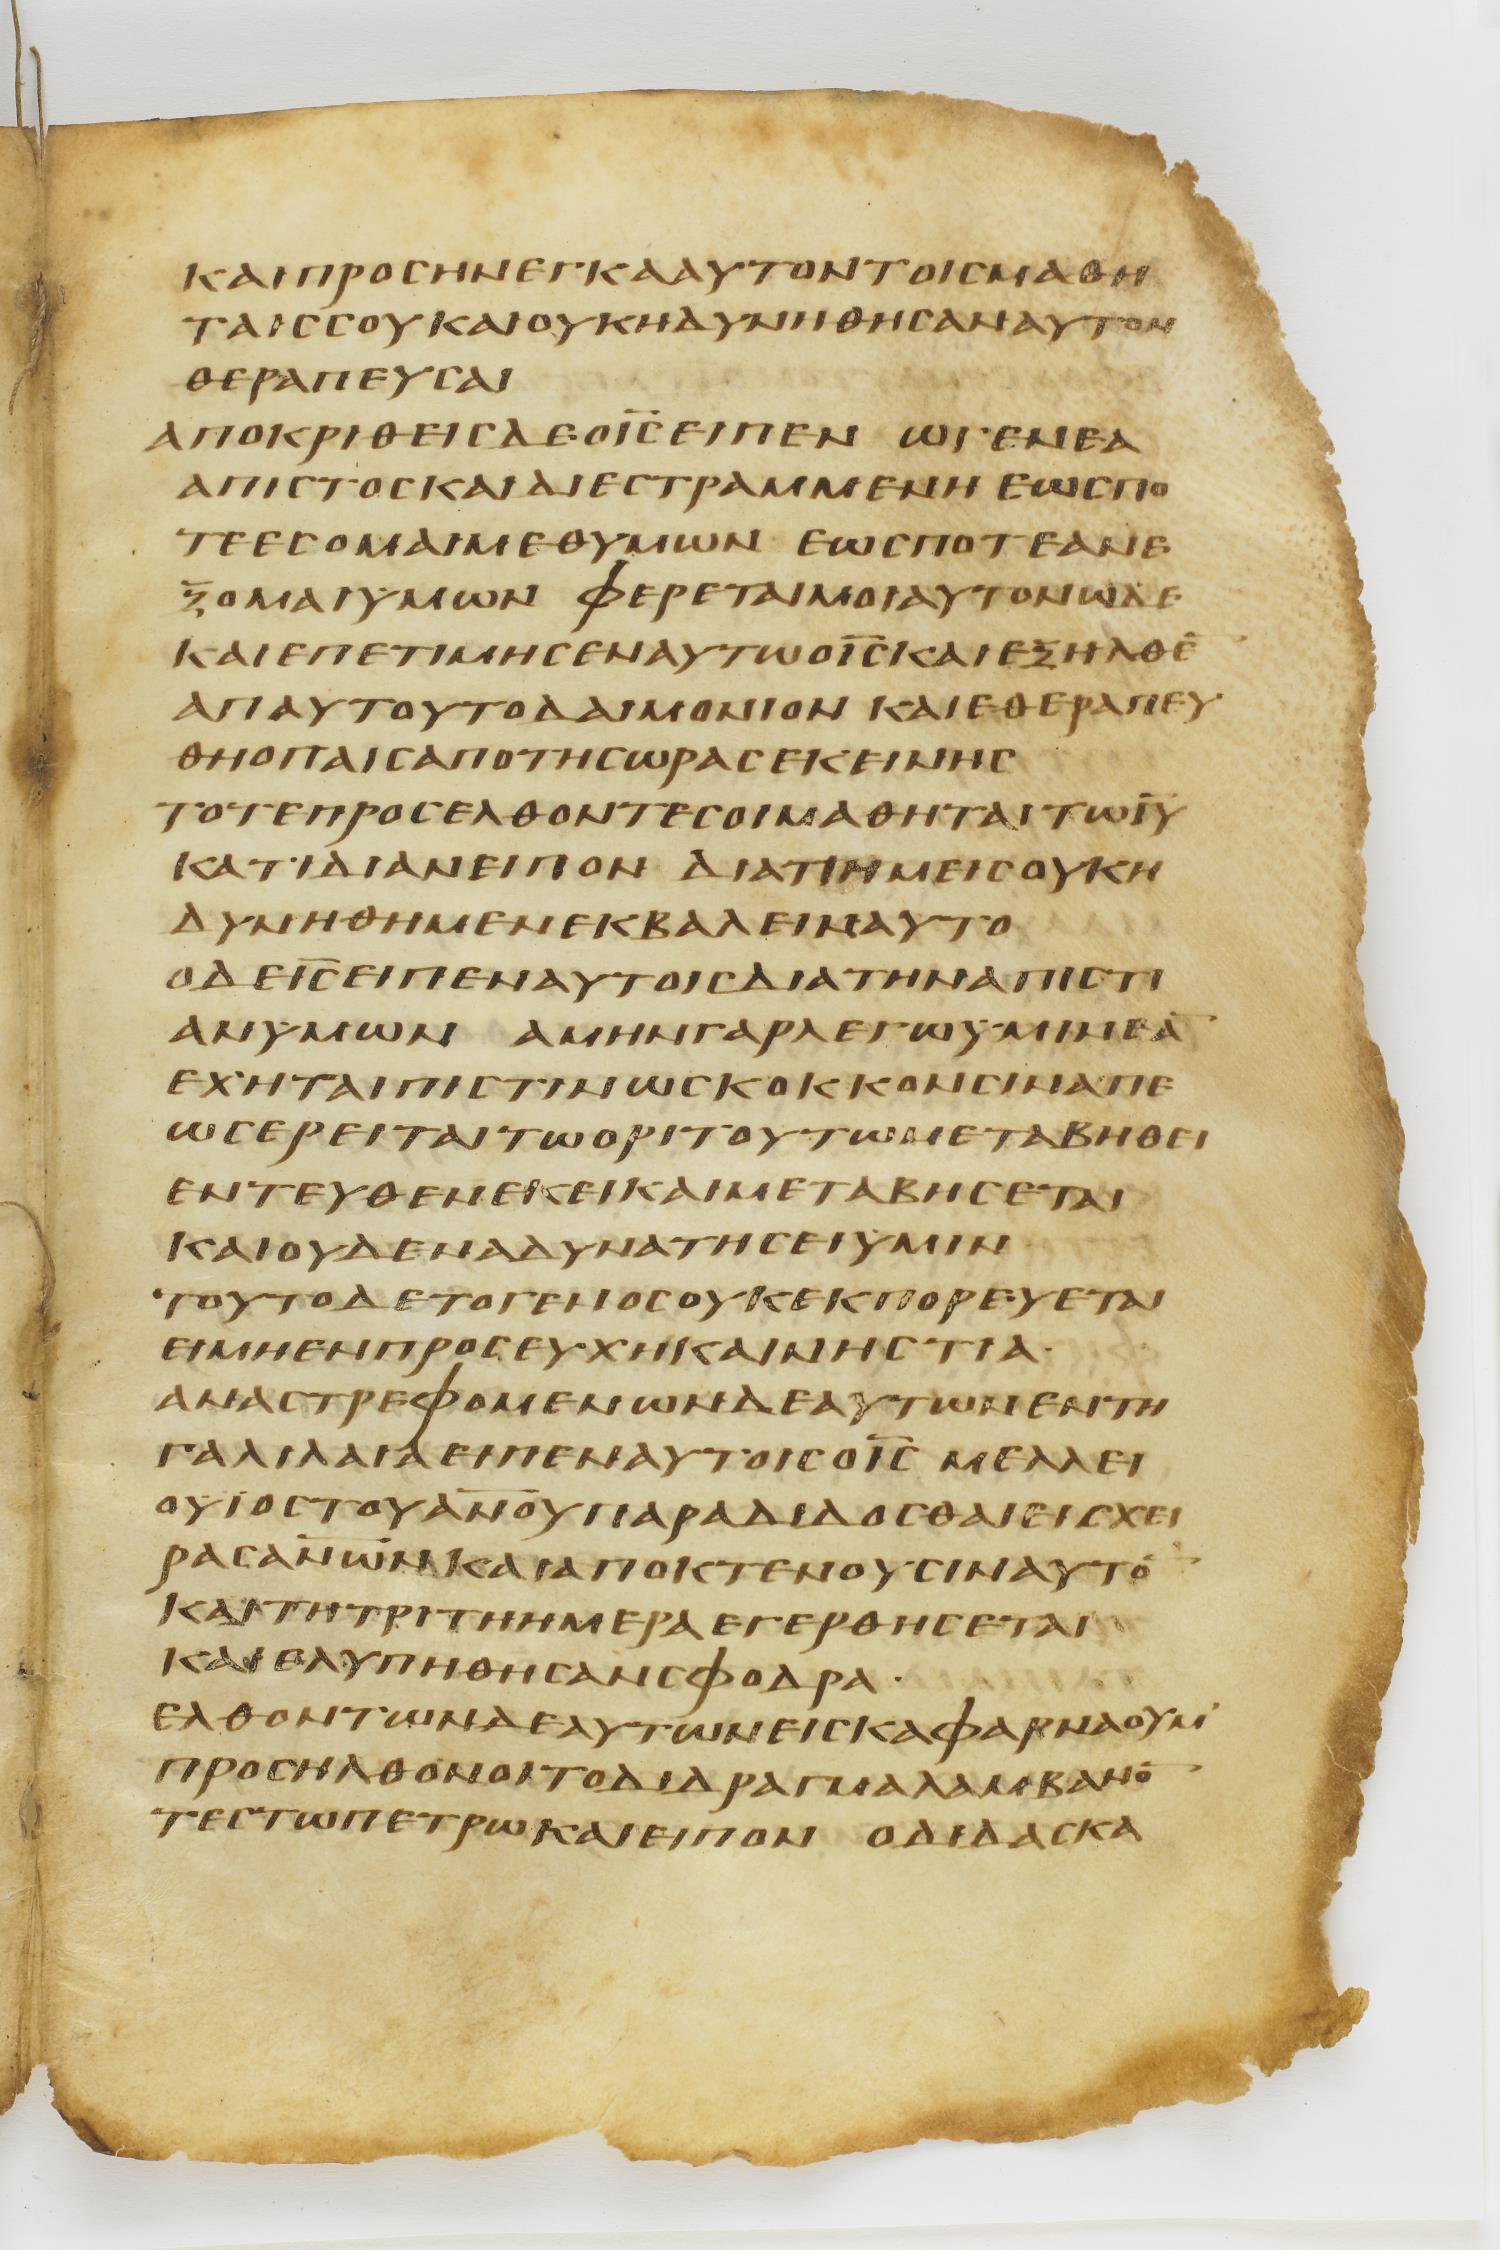 ΚΑΙΠΡΟCΗΝΕΓΚΑΑΥΤΟΝΤΟΙCΜΑΘΗ
ΤΑΙCCΟΥΚΑΙΟΥΚΗΔΥΝΗΘΗCΑΝΑΥΤΟΝ
ΘΕΡΑΠΕΥCΑΙ
ΑΠΟΚΡΙΘΕΙCΔΕΟΙ̅C̅ΕΙΠΕΝ ΩΓΕΝΕΑ
ΑΠΙCΤΟCΚΑΙΔΙΕCΤΡΑΜΜΕΝΗ ΕΩCΠΟ
ΤΕΕCΟΜΑΙΜΕΘΥΜΩΝ ΕΩCΠΟΤΕΑΝΕ
ΞΟΜΑΙΫΜΩΝ ΦΕΡΕΤΑΙΜΟΙΑΥΤΟΝΩΔΕ
ΚΑΙΕΠΕΤΙΜΗCΕΝΑΥΤΩΟΙ̅C̅ΚΑΙΕΞΗΛΘΕ̅
ΑΠΑΥΤΟΥΤΟΔΑΙΜΟΝΙΟΝ ΚΑΙΕΘΕΡΑΠΕΥ
ΘΗΟΠΑΙCΑΠΟΤΗCΩΡΑCΕΚΕΙΝΗC
ΤΟΤΕΠΡΟCΕΛΘΟΝΤΕCΟΙΜΑΘΗΤΑΙΤΩΙ̅Υ̅
ΚΑΤΙΔΙΑΝΕΙΠΟΝ ΔΙΑΤΙΗΜΕΙCΟΥΚΗ
ΔΥΝΗΘΗΜΕΝΕΚΒΑΛΕΙΝΑΥΤΟ
ΟΔΕΙ̅C̅ΕΙΠΕΝΑΥΤΟΙCΔΙΑΤΗΝΑΠΙCΤΙ
ΑΝΫΜΩΝ ΑΜΗΝΓΑΡΛΕΓΩΫΜΙΝΕΑ̅
ΕΧΗΤΑΙΠΙCΤΙΝΩCΚΟΚΚΟΝCΙΝΑΠΕ
ΩCΕΡΕΙΤΑΙΤΩΟΡΙΤΟΥΤΩΜΕΤΑΒΗΘΕΙ
ΕΝΤΕΥΘΕΝΕΚΕΙΚΑΙΜΕΤΑΒΗCΕΤΑΙ
ΚΑΙΟΥΔΕΝΑΔΥΝΑΤΗCΕΙΫΜΙΝ
ΤΟΥΤΟΔΕΤΟΓΕΝΟCΟΥΚΕΚΠΟΡΕΥΕΤΑΙ
ΕΙΜΗΕΝΠΡΟCΕΥΧΗΚΑΙΝΗCΤΙΑ·
ΑΝΑCΤΡΕΦΟΜΕΝΩΝΔΕΑΥΤΩΝΕΝΤΗ
ΓΑΛΙΛΑΙΑΕΙΠΕΝΑΥΤΟΙCΟΙ̅C̅ ΜΕΛΛΕΙ
ΟΥΪΟCΤΟΥΑ̅Ν̅Ο̅Υ̅ΠΑΡΑΔΙΔΟCΘΑΙΕΙCΧΕΙ
ΡΑCΑ̅Ν̅Ω̅Ν̅ΚΑΙΑΠΟΚΤΕΝΟΥCΙΝΑΥΤΟ̅
ΚΑΙΤΗΤΡΙΤΗΗΜΕΡΑΕΓΕΡΘΗCΕΤΑΙ
ΚΑΙΕΛΥΠΗΘΗCΑΝCΦΟΔΡΑ·
ΕΛΘΟΝΤΩΝΔΕΑΥΤΩΝΕΙCΚΑΦΑΡΝΑΟΥΜ
ΠΡΟCΗΛΘΟΝΟΙΤΟΔΙΔΡΑΓΜΑΛΑΜΒΑΝΟ̅
ΤΕCΤΩΠΕΤΡΩΚΑΙΕΙΠΟΝ ΟΔΙΔΑCΚΑ